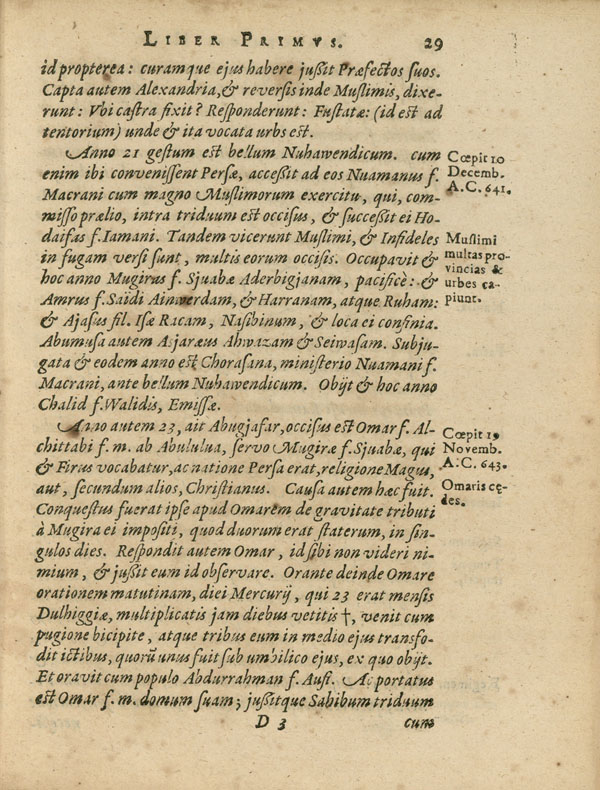 LIBER PRIMVS. 29
id propterea: curamque ejus habere jußit Præfectos suos.
Capta autem Alexandria, & reversis inde Muslimis, dixe-
runt: Vbi castra fixit? Responderunt: Fustatæ: (id est ad
tentorium) unde & ita vocata urbs est.
Anno 21 gestum est bellum Nuhawendicum. cum
enim ibi convenissent Persæ, acceßit ad eos Nuamanus f.
Macrani cum magno Muslimorum exercitu, qui, com-
misso prælio, intra triduum est occisus, & succeßit ei Ho-
daifas f. Iamani. Tandem vicerunt Muslimi, & Infideles
in fugam versi sunt, multis eorum occisis. Occupavit &
hoc anno Mugiras f. Sjuabæ Aderbigjanam, pacificè: &
Amrus f. Saidi Ainwerdam, & Harranam, atque Ruham:
& Ajasus fil. Isæ Racam, Nasibinum, & loca ei confinia.
Abumusa autem Asjaræus Ahwazam & Seiwasam. Subju-
gata & eodem anno est Chorasana, ministerio Nuamani f.
Macrani, ante bellum Nuhawendicum. Obijt & hoc anno
Chalid f. Walidis, Emissæ.
Anno autem 23, ait Abugjafar, occisus est Omar f. Al-
chittabi f. m. ab Abululua, servo Mugiræ f. Sjuabæ, qui
& Firus vocabatur, ac natione Persa erat, religione Magus,
aut, secundum alios, Christianus. Causa autem hæc fuit.
Conquestus fuerat ipse apud Omarem de gravitate tributi
à Mugira ei impositi, quod duorum erat staterum, in sin-
gulos dies. Respondit autem Omar, id sibi non videri ni-
mium, & jußit eum id observare. Orante deinde Omare
orationem matutinam, diei Mercurij, qui 23 erat mensis
Dulhiggiæ, multiplicatis jam diebus vetitis †, venit cum
pugione bicipite, atque tribus eum in medio ejus transfo-
dit ictibus, quorũ unus fuit sub umbilico ejus, ex quo obijt.
Et oravit cum populo Abdurrahman f. Aufi. Asportatus
est Omar f. m. domum suam; jußitque Sahibum triduum
D 3 cum
Cœpit 10
Decemb.
A. C. 641.
Muslimi
multas pro-
vincias &
urbes ca-
piunt.
Cœpit 19
Novemb.
A. C. 643.
Omaris cę-
des.